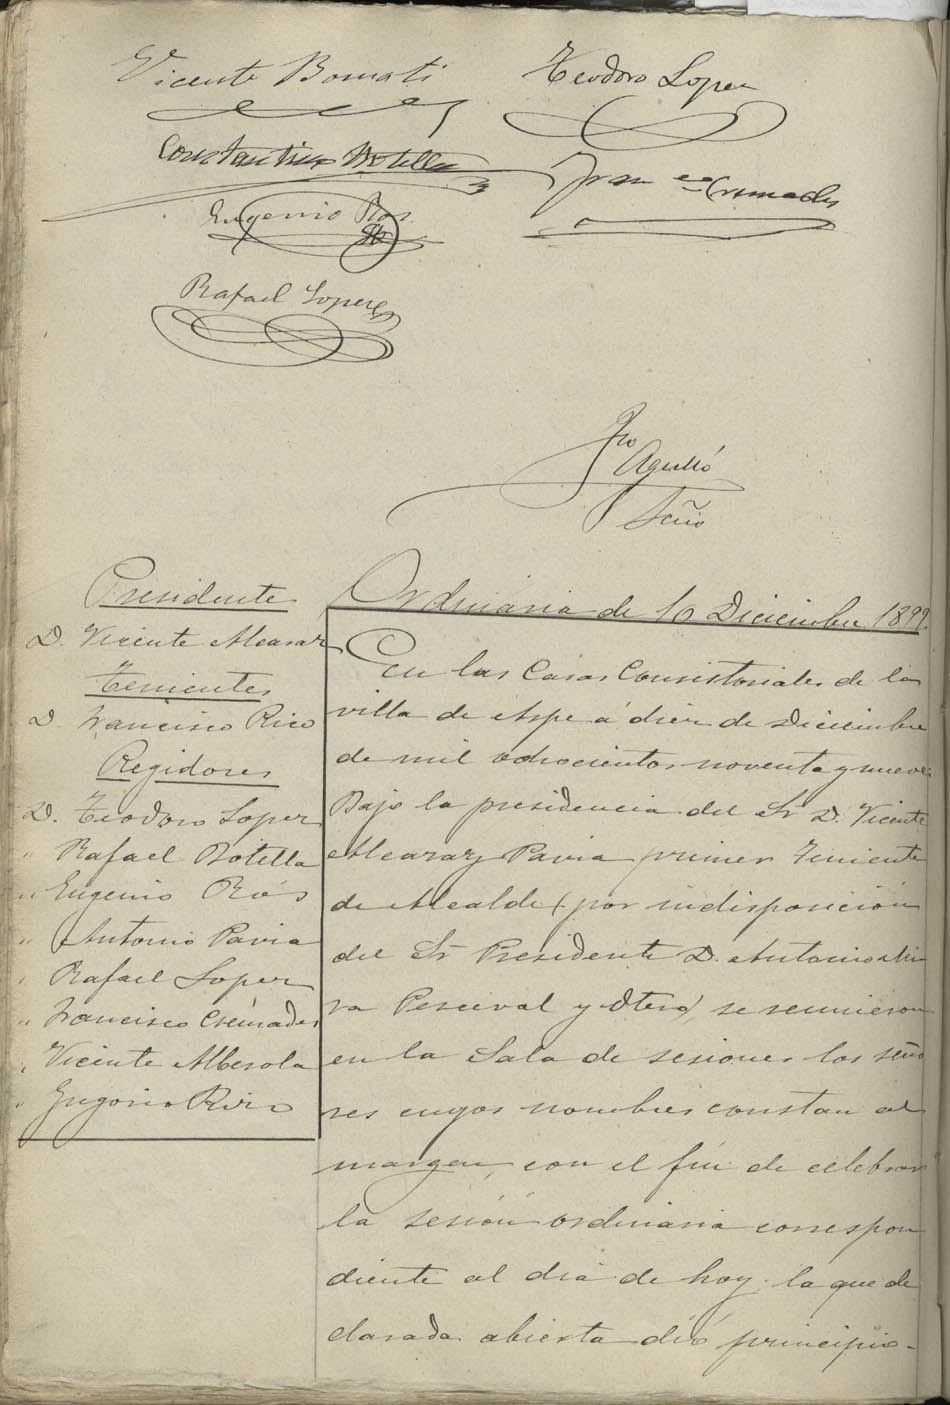 Vicente Bomati
Teodoro Lopez
Constantino Botella
Franco Cremades
Eugenio Ros
Rafael Lopez
Fco
Agulló
Srio
Presidente
D. Vicente Alcaraz
Tenientes
D. Francisco Rico
Regidores
D. Teodoro Loper
" Rafael Botella
" Eugenio Rós
" Antonio Pavia
" Rafael Loper
" Francisco Cremades
" Vicente Alberola
" Gregorio Rizo
Ordinaria de 10 Diciembre 1899.
En las Casas Consistoriales de la
villa de Aspe á diez de Diciembre
de mil ochocientos noventa y nueve.
Bajo la presidencia del Sr D. Vicente
Alcaraz Pavia primer Teniente
de Alcalde (por indisposición
del Sr Presidente D. Antonio Mi
ra Perceval y Otero) se reunieron
en la Sala de sesiones los seño
res cuyos nombres constan al
margen, con el fin de celebrar
la sesión ordinaria correspon
diente al dia de hoy; la que de
clarada abierta dió principio-